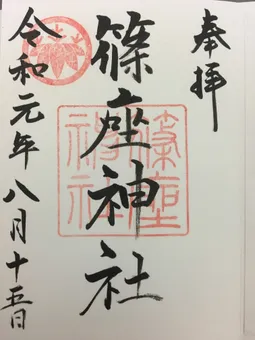 奉拝
篠座神社
篠座
神社
令和元年八月十五日